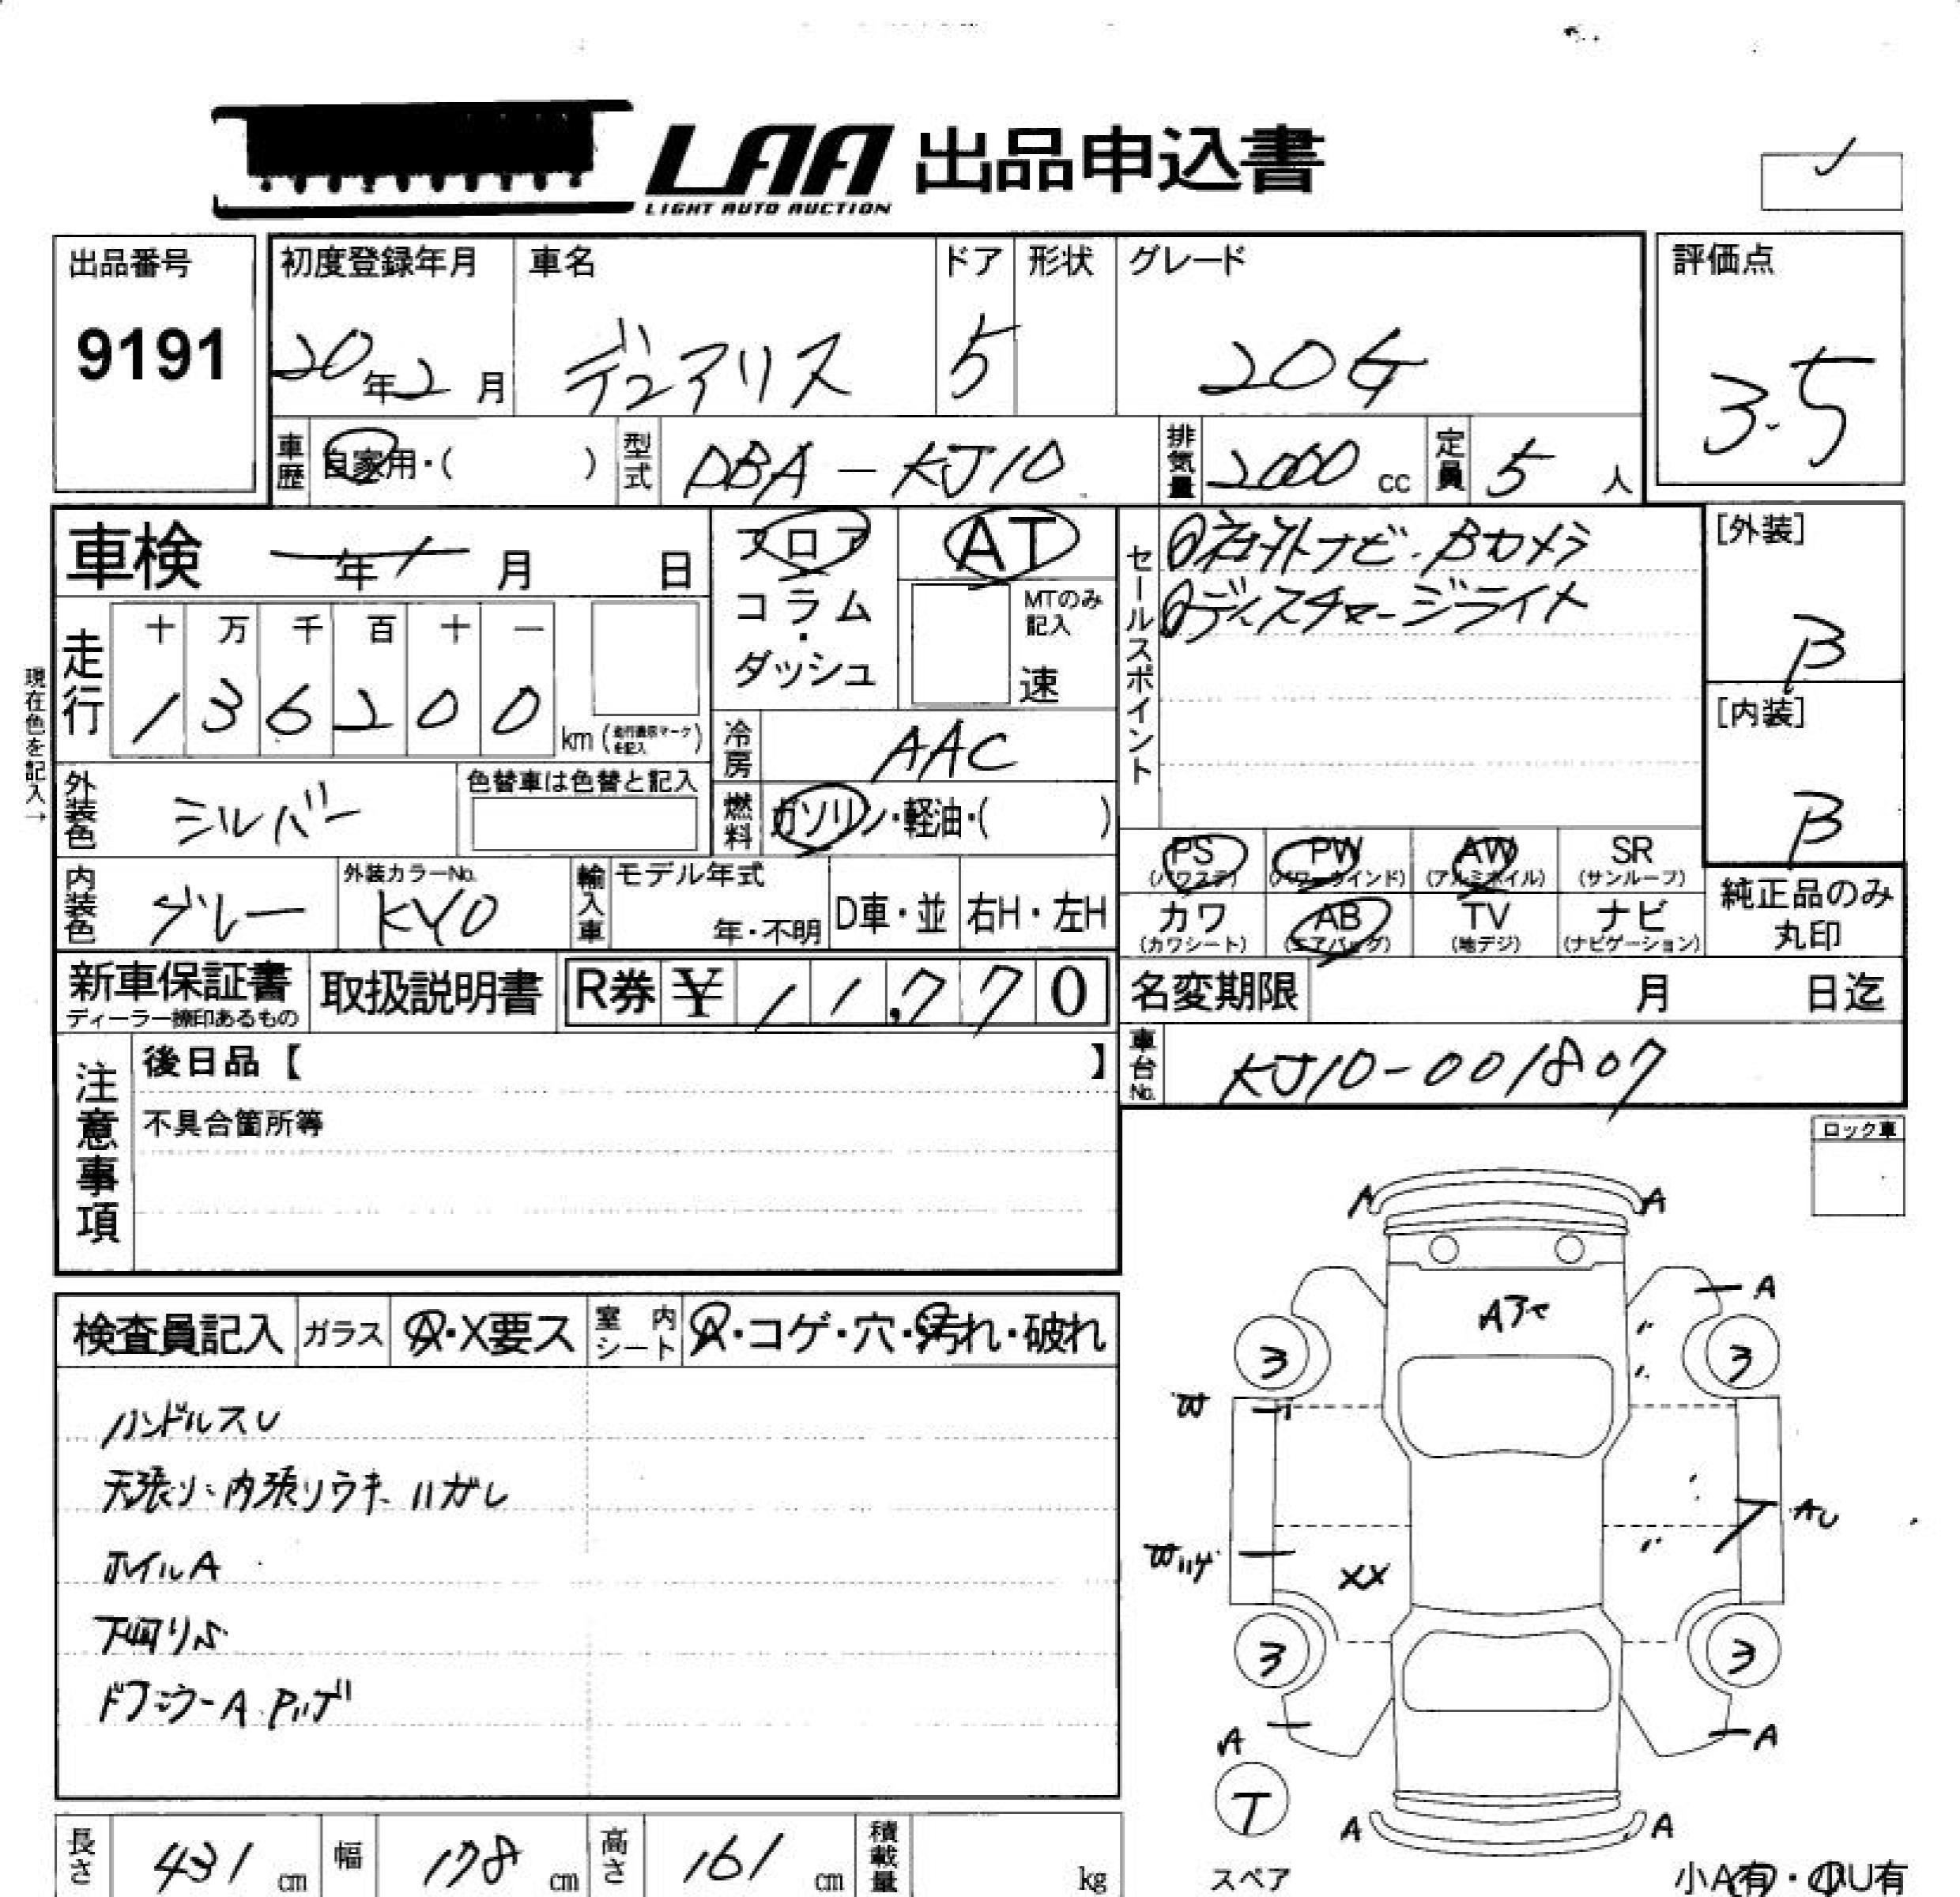 LAA 出品申込書
LIGHT AUTO AUCTION
出品番号
9191
初度登録年月
20年2月
車名
デュアリス
ドア
5
形状
グレード
20G
評価点
3.5
車歴
自家用・( )
型式
DBA-KJ10
排気量
2000 cc
定員
5 人
車検
年 月 日
フロア
コラム
・
ダッシュ
AT
MTのみ
記入
速
セールスポイント
①社外ナビ・Bカメラ
②ディスチャージライト
[外装]
B
[内装]
B
現在色を記入→
走行
十 万 千 百 十 一
1 3 6 2 0 0
km (走行表示マークを記入)
冷房
AAC
外装色
シルバー
色替車は色替と記入
燃料
ガソリン・軽油・( )
内装色
グレー
外装カラーNo.
KY0
輸入車
モデル年式
年・不明
D車・並
右H・左H
PS
(パワステ)
PW
(パワーウインド)
AW
(アルミホイル)
SR
(サンルーフ)
カワ
(カワシート)
AB
(エアバッグ)
TV
(地デジ)
ナビ
(ナビゲーション)
純正品のみ
丸印
新車保証書
ディーラー捺印あるもの
取扱説明書
R券 ¥ 11,770
名変期限
月 日迄
車台No.
KJ10-001807
注意事項
後日品【 】
不具合箇所等
ロック車
検査員記入
ガラス
A・X要ス
室内シート
A・コゲ・穴・汚れ・破れ
ハンドルスレ
天張り・内張りウキ ハガレ
ホイルA
下回りS
ドアミラーA・Pハゲ
A A
A
3 3
W
AU
Wハゲ
XX
3 3
A A
T
スペア
A A
小A有・小U有
長さ
431 cm
幅
178 cm
高さ
161 cm
積載量
kg